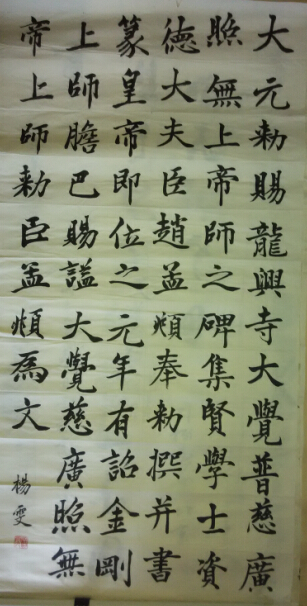 大元勑賜龍興寺大覺普慈廣
照無上帝師之碑集賢學士資
德大夫臣趙孟頫奉勑撰并書
篆皇帝即位之元年有詔金剛
上師膽巴賜謚大覺慈廣照無
帝上師勑臣孟頫為文
楊雯